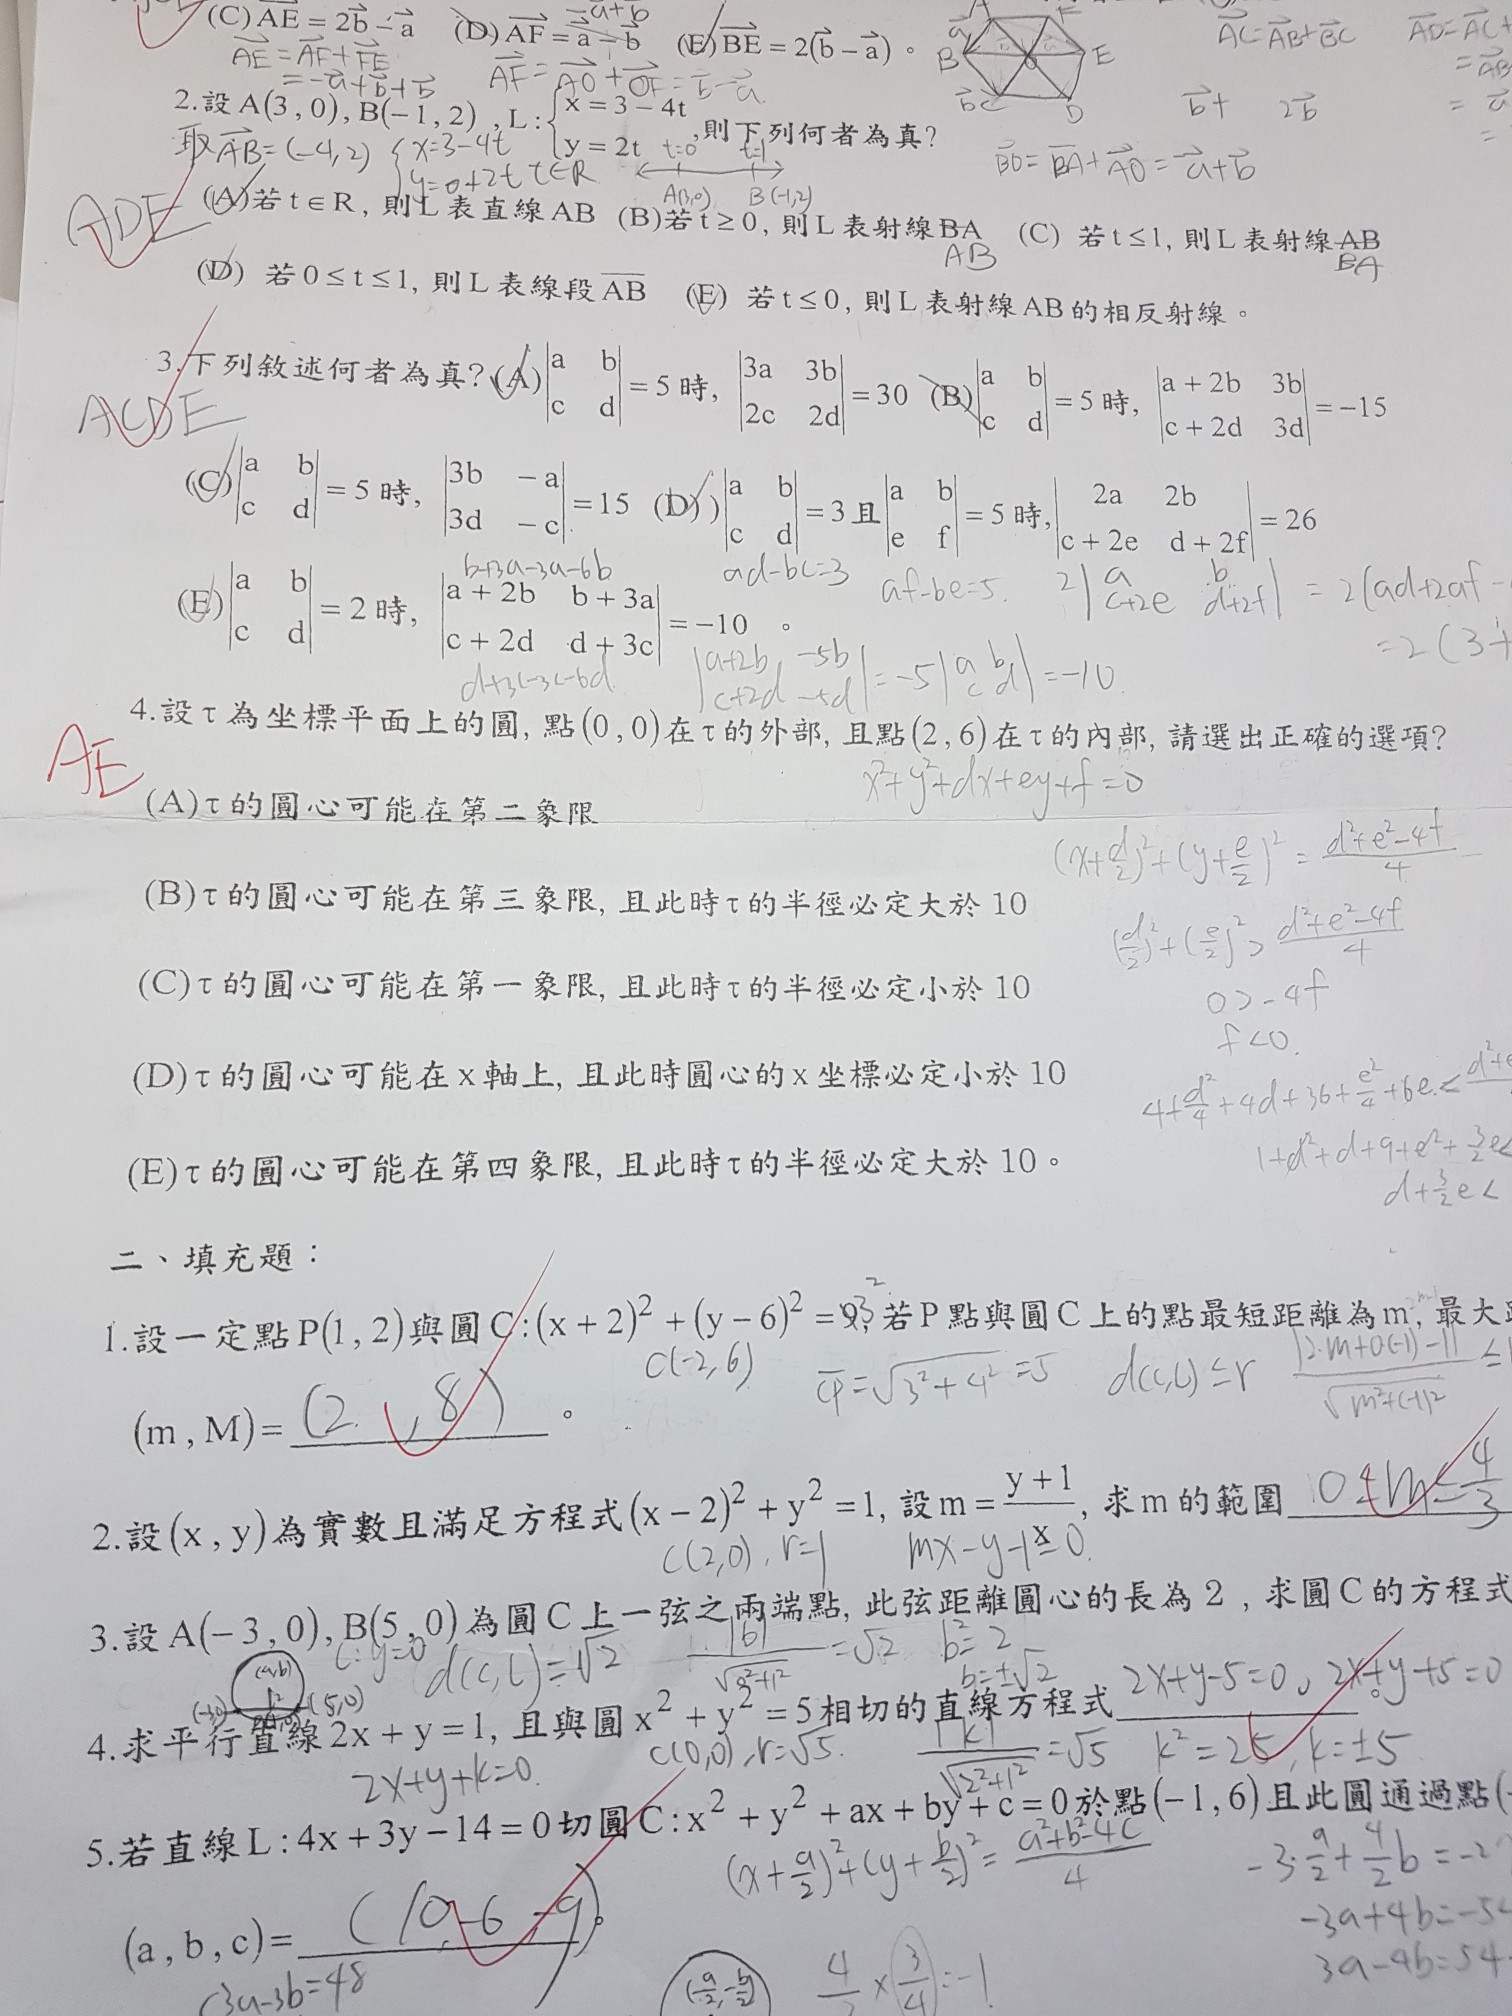 (C) AE = 2b - a (D) AF = a - b (E) BE = 2(b - a)。
= -a + b
AE = AF + FE
= -a + b + b
AF = AO + OF = b - a
A F
a
B O E
b C D
AC = AB + BC
AD = AC +
= AB
= a
=
b + 2b
BD = BA + AD = -a + b
2.設A(3,0), B(-1,2), L:{x = 3 - 4t, y = 2t, 則下列何者為真?
取AB = (-4,2) {x = 3-4t, y = 0+2t t∈R
t=0 t=1
A(3,0) B(-1,2)
ADE
(A)若t∈R, 則L表直線AB (B)若t≥0, 則L表射線BA (C) 若t≤1, 則L表射線AB
AB BA
(D) 若0≤t≤1, 則L表線段AB (E) 若t≤0, 則L表射線AB的相反射線。
3.下列敘述何者為真?(A)|a b; c d| = 5時, |3a 3b; 2c 2d| = 30 (B)|a b; c d| = 5時, |a+2b 3b; c+2d 3d| = -15
ACDE
(C)|a b; c d| = 5時, |3b -a; 3d -c| = 15 (D))|a b; c d| = 3且|a b; e f| = 5時, |2a 2b; c+2e d+2f| = 26
b+3a-3a-6b
ad-bc=3 af-be=5. 2|a b; c+2e d+2f| = 2(ad+2af-
= 2(3+
(E)|a b; c d| = 2時, |a+2b b+3a; c+2d d+3c| = -10 。
d+3c-3c-6d
|a+2b -5b; c+2d -5d| = -5|a b; c d| = -10.
4.設τ為坐標平面上的圓, 點(0,0)在τ的外部, 且點(2,6)在τ的內部, 請選出正確的選項?
AE
x²+y²+dx+ey+f=0
(A)τ的圓心可能在第二象限
(x+d/2)²+(y+e/2)² = (d²+e²-4f)/4
(B)τ的圓心可能在第三象限, 且此時τ的半徑必定大於10
(d/2)²+(e/2)² > (d²+e²-4f)/4
(C)τ的圓心可能在第一象限, 且此時τ的半徑必定小於10
0>-4f
f<0.
(D)τ的圓心可能在x軸上, 且此時圓心的x坐標必定小於10
4+d²/4+4d+36+e²/4+6e<
(E)τ的圓心可能在第四象限, 且此時τ的半徑必定大於10。
1+d²+d+9+e²+3/2e<
d+3/2e<
二、填充題:
1.設一定點P(1,2)與圓C:(x+2)²+(y-6)²=9, 若P點與圓C上的點最短距離為m, 最大
3²
C(-2,6) CP=√(3²+4²)=5 d(C,L)≤r |2·m+0(-1)-1|/√(m²+(-1)²) ≤
(m,M)= (2,8) 。
2.設(x,y)為實數且滿足方程式(x-2)²+y²=1, 設m=(y+1)/x, 求m的範圍 0≤m≤4/3
C(2,0), r=1 mx-y-1=0.
3.設A(-3,0), B(5,0)為圓C上一弦之兩端點, 此弦距離圓心的長為2, 求圓C的方程式
L:y=0 d(C,L)=√2 |b|/√(0²+1²)=√2 b²=2
b=±√2
(a,b)
(-3,0) (5,0)
4.求平行直線2x+y=1, 且與圓x²+y²=5相切的直線方程式 2x+y-5=0, 2x+y+5=0 。
2x+y+k=0. C(0,0), r=√5. |k|/√(2²+1²)=√5 k²=25, k=±5
5.若直線L:4x+3y-14=0切圓C:x²+y²+ax+by+c=0於點(-1,6)且此圓通過點(
(x+a/2)²+(y+b/2)²=(a²+b²-4c)/4
-3·a/2+4/2b=-2
(a,b,c)= (10,-6,-9)。
-3a+4b=-54
3a-4b=54
3a-3b=48
(-a/2,-b/2)
×3/4=-1